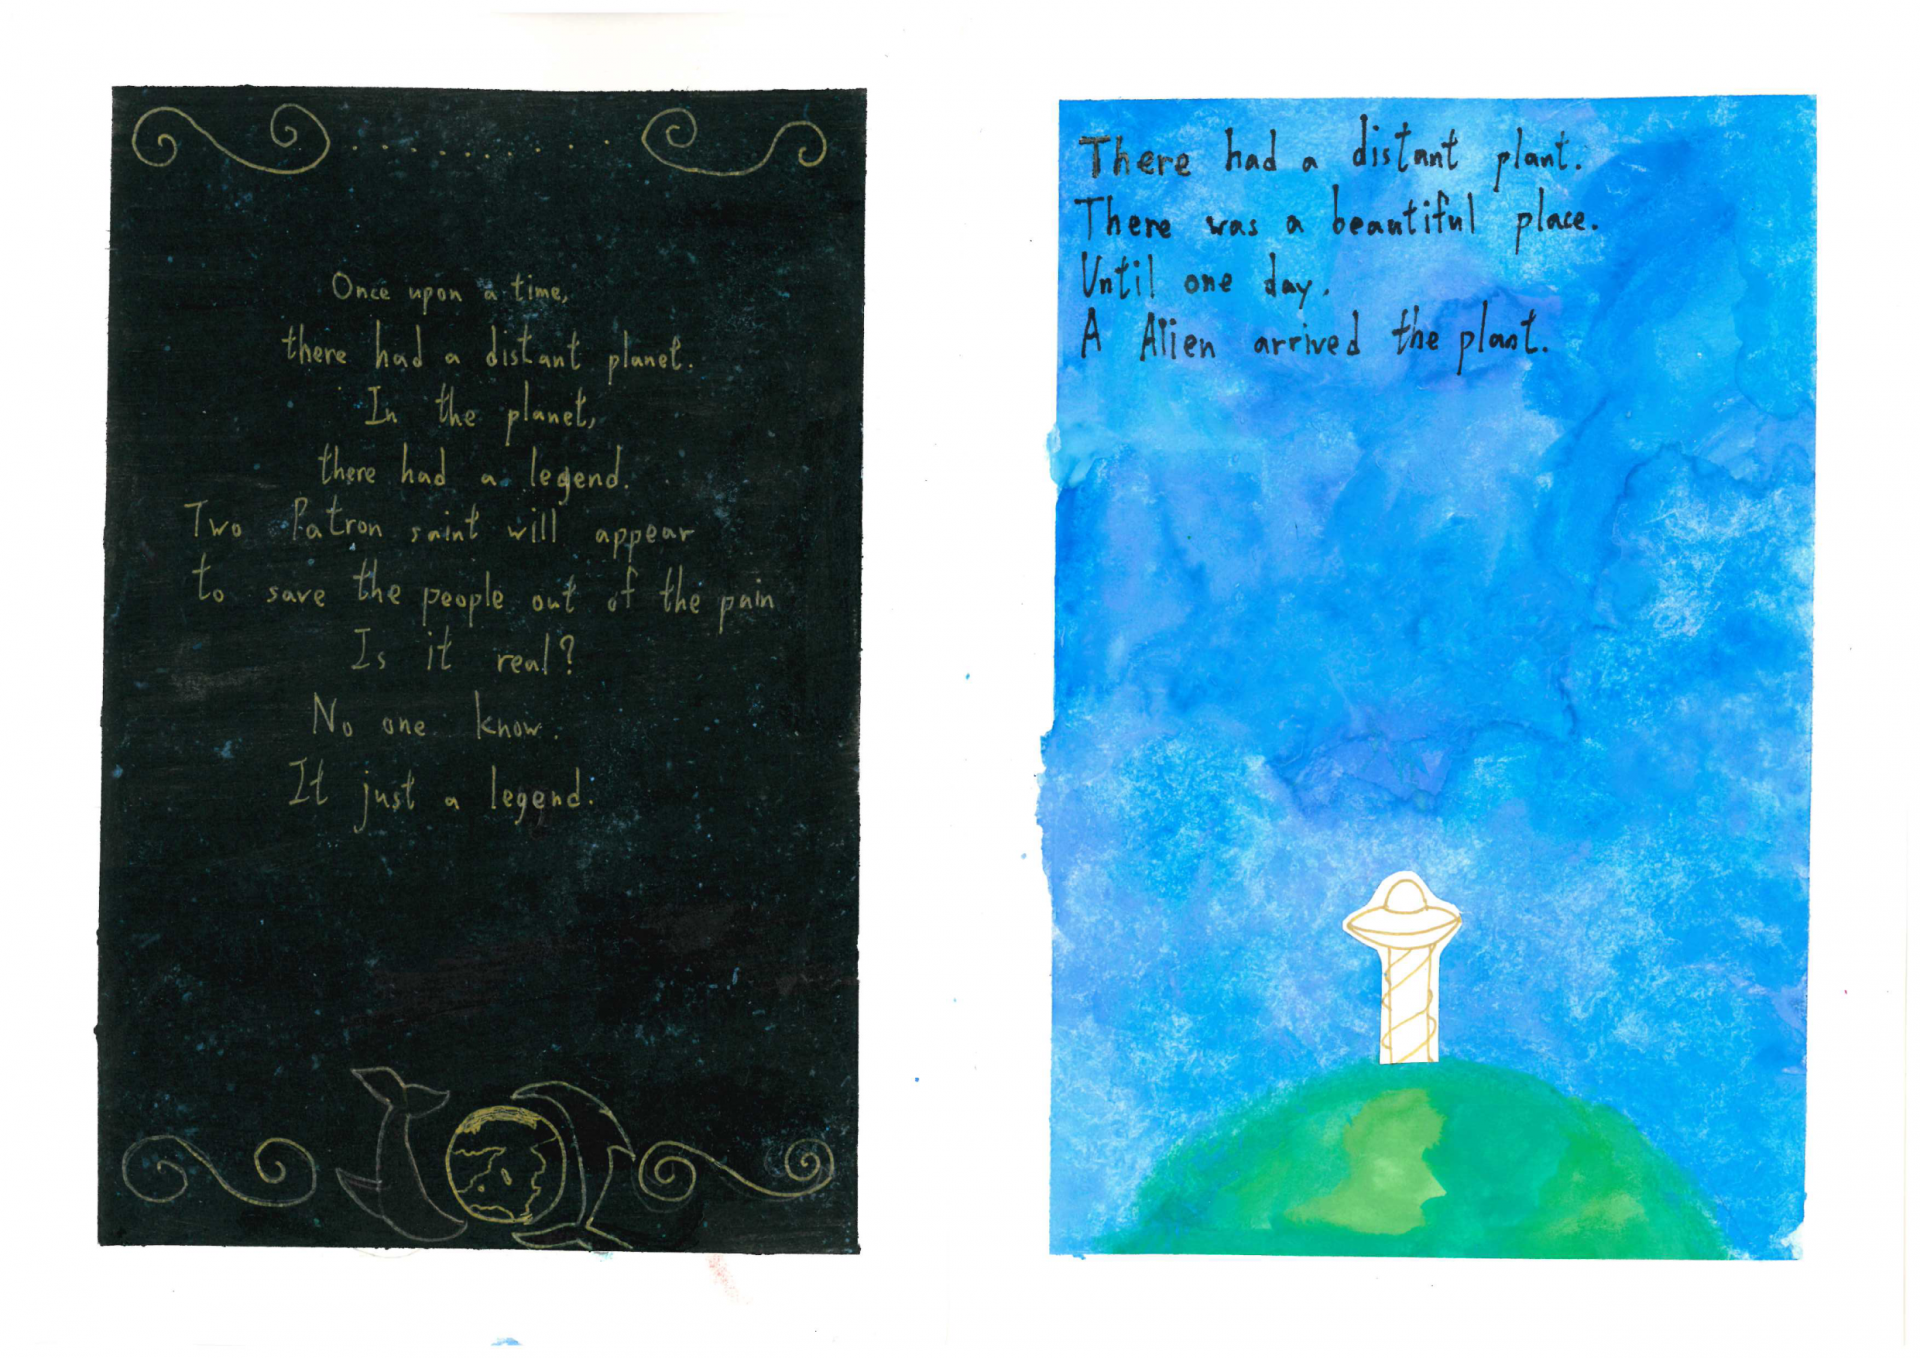 Once upon a time,
there had a distant planet.
In the planet,
there had a legend.
Two Patron saint will appear
to save the people out of the pain
Is it real?
No one know.
It just a legend.
There had a distant plant.
There was a beautiful place.
Until one day.
A Alien arrived the plant.